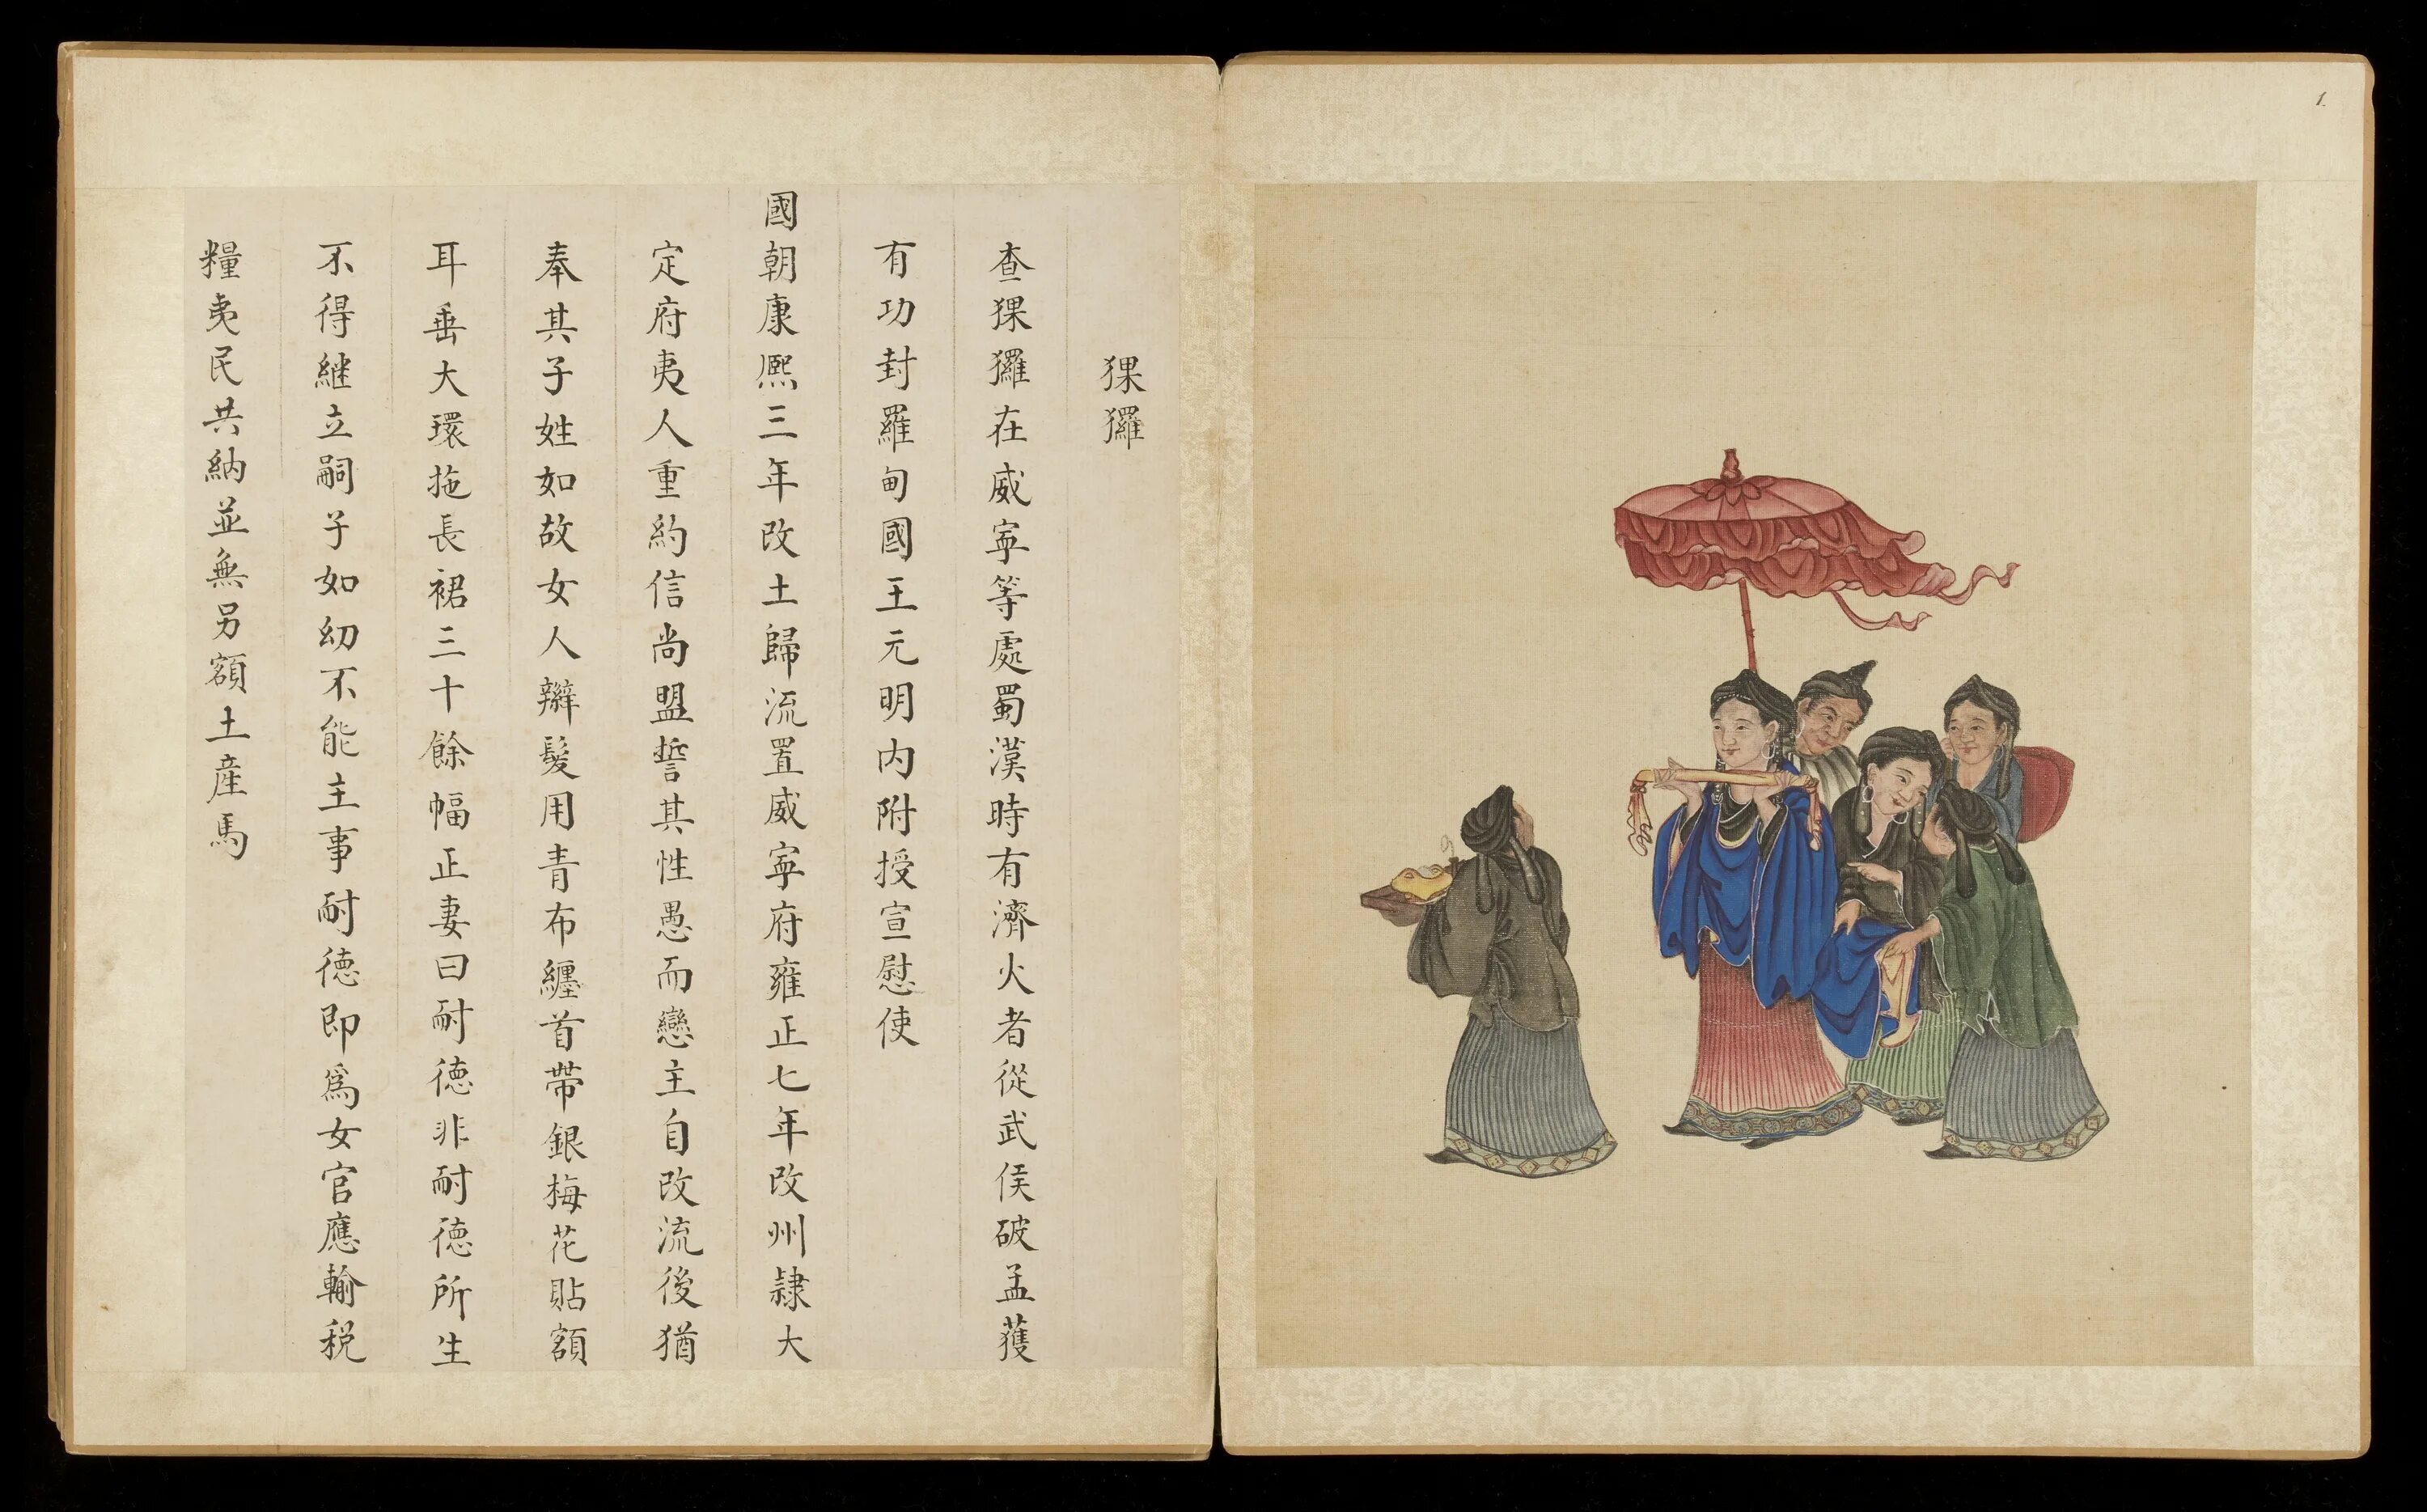 1.
猓玀
查猓玀在威寜等處蜀漢時有濟火者從武侯破孟獲
有功封羅甸國王元明内附授宣慰使
國朝康熈三年改土歸流置威寜府雍正七年改州隷大
定府夷人重約信尚盟誓其性愚而戀主自改流後猶
奉其子姓如故女人辮髮用青布纏首帶銀梅花貼額
耳垂大環拖長裙三十餘幅正妻曰耐徳非耐徳所生
不得継立嗣子如幼不能主事耐徳即爲女官應輸税
糧夷民共納並無另額土産馬